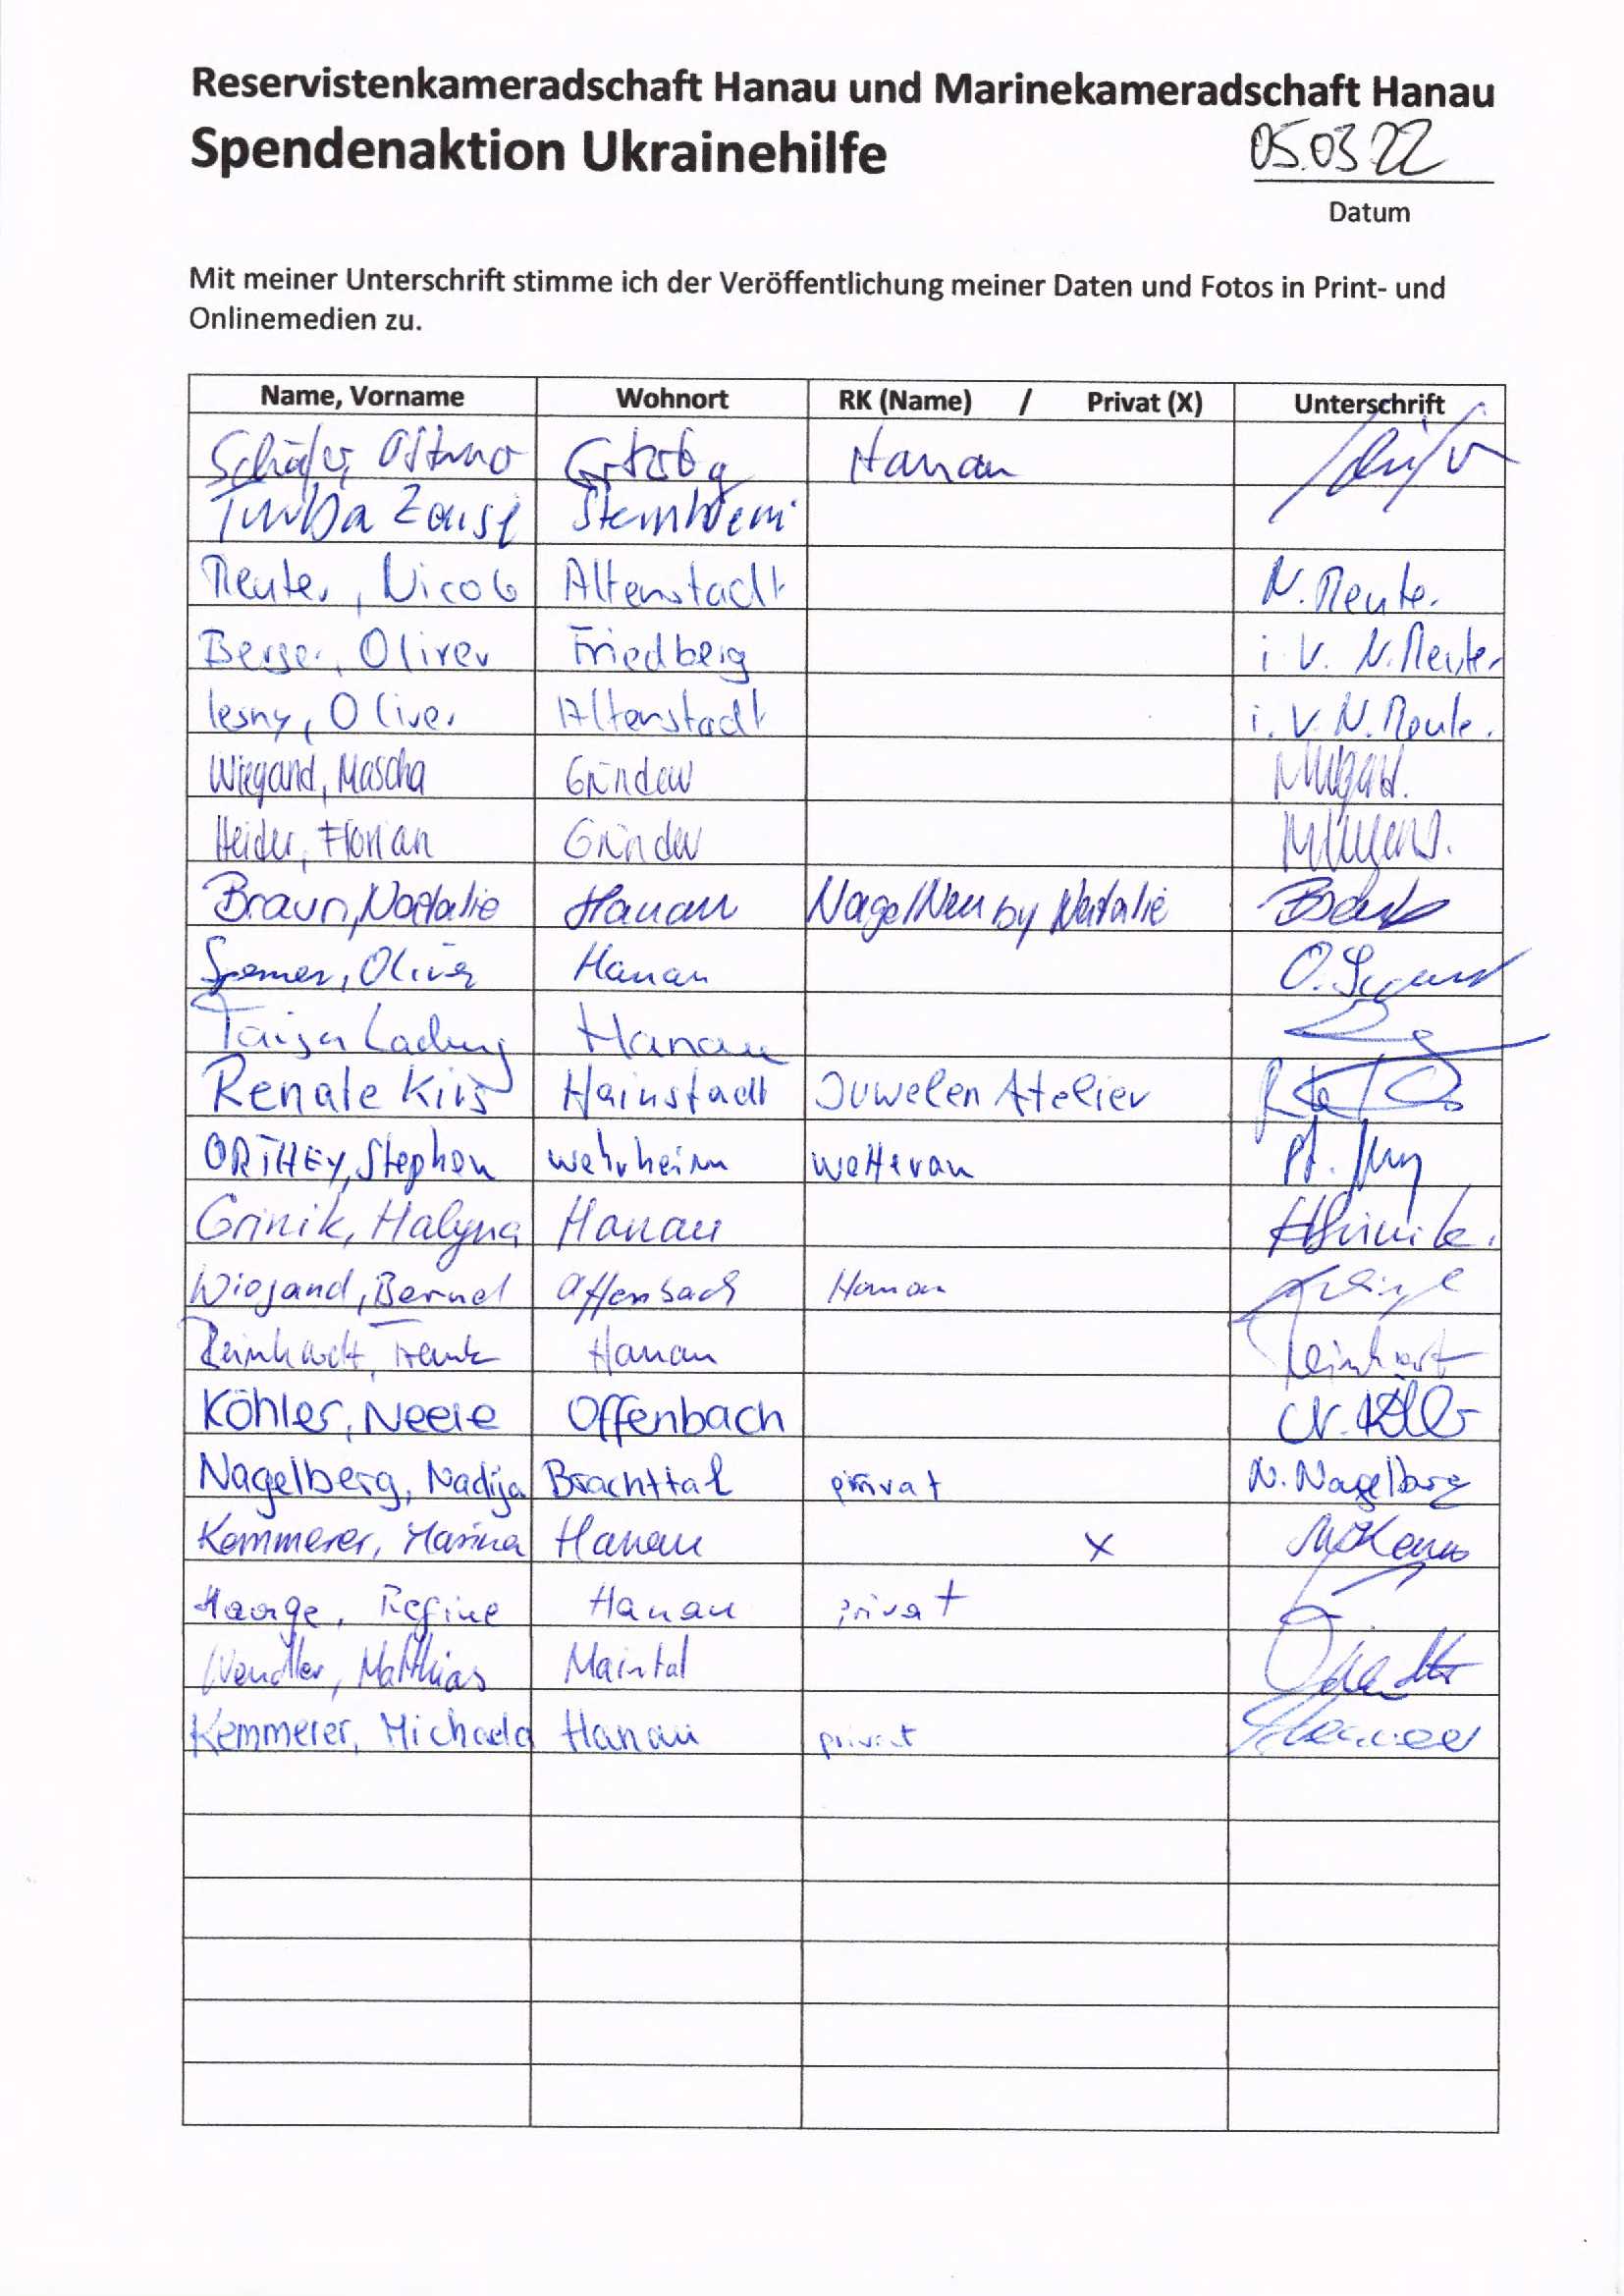 Reservistenkameradschaft Hanau und Marinekameradschaft Hanau
Spendenaktion Ukrainehilfe 05.03.22
Datum
Mit meiner Unterschrift stimme ich der Veröffentlichung meiner Daten und Fotos in Print- und
Onlinemedien zu.
Name, Vorname Wohnort RK (Name) / Privat (X) Unterschrift
Schäfer, Hanau
Reuter, Nicole Altenstadt N. Reuter
Berger, Oliver Friedberg i. V. N. Reuter
lesny, Oliver Altenstadt i. V. N. Reuter
Wiegand, Mascha Gründau
Heider, Florian Gründau
Braun, Natalie Hanau NagelNeu by Natalie
Oliver Hanau O.
Hanau
Renate Hainstadt Juwelen Atelier
ORTHEY, Stephan wehrheim wetterau
Grinik, Halyna Hanau
Wiegand, Bernd Offenbach Hanau
Reinhardt, Frank Hanau
Köhler, Neele Offenbach N. Köhler
Nagelberg, Nadija Brachttal privat N. Nagelberg
Kemmerer, Marina Hanau X
Regine Hanau privat
Wendler, Matthias Maintal
Kemmerer, Michaela Hanau privat